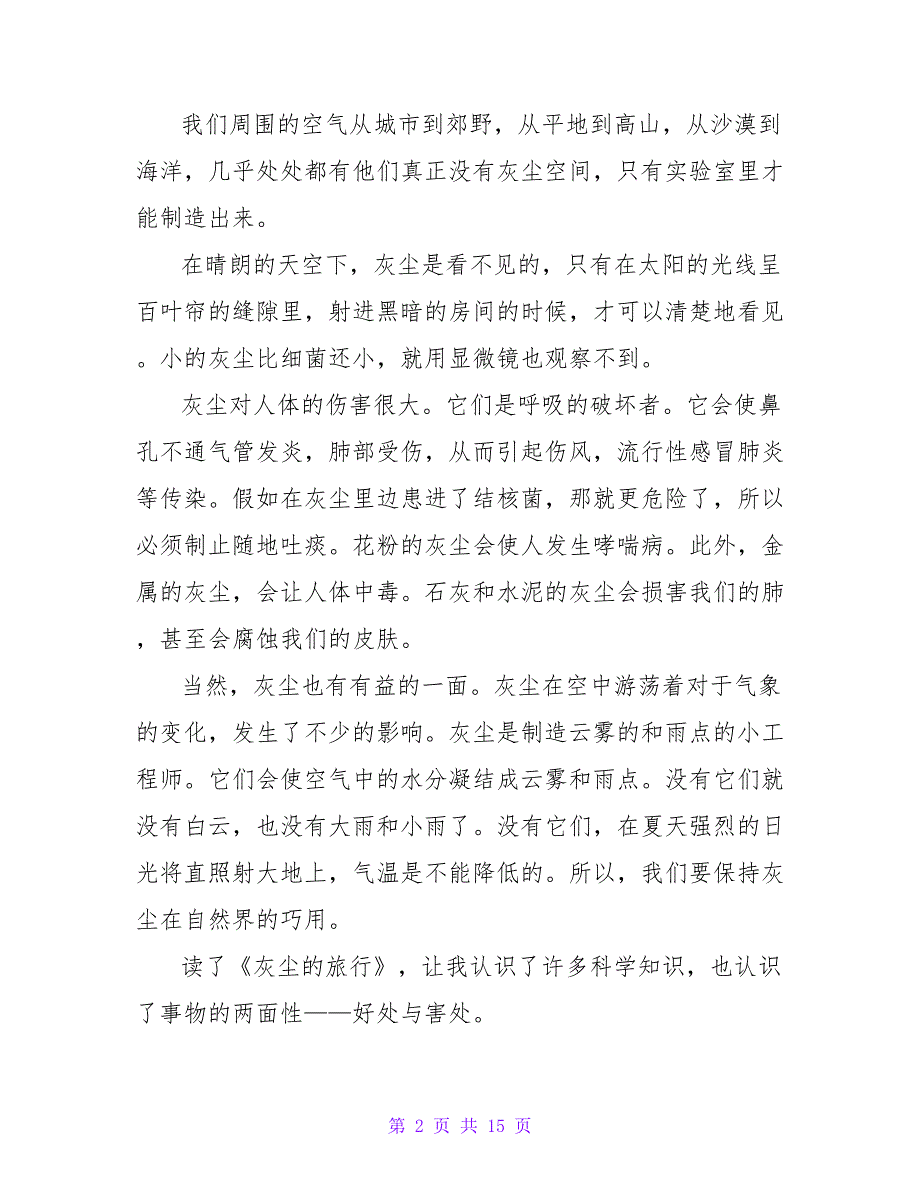 我们周围的空气从城市到郊野，从平地到高山，从沙漠到
海洋，几乎处处都有他们真正没有灰尘空间，只有实验室里才
能制造出来。
在晴朗的天空下，灰尘是看不见的，只有在太阳的光线呈
百叶帘的缝隙里，射进黑暗的房间的时候，才可以清楚地看见
。小的灰尘比细菌还小，就用显微镜也观察不到。
灰尘对人体的伤害很大。它们是呼吸的破坏者。它会使鼻
孔不通气管发炎，肺部受伤，从而引起伤风，流行性感冒肺炎
等传染。假如在灰尘里边患进了结核菌，那就更危险了，所以
必须制止随地吐痰。花粉的灰尘会使人发生哮喘病。此外，金
属的灰尘，会让人体中毒。石灰和水泥的灰尘会损害我们的肺
，甚至会腐蚀我们的皮肤。
当然，灰尘也有有益的一面。灰尘在空中游荡着对于气象
的变化，发生了不少的影响。灰尘是制造云雾的和雨点的小工
程师。它们会使空气中的水分凝结成云雾和雨点。没有它们就
没有白云，也没有大雨和小雨了。没有它们，在夏天强烈的日
光将直照射大地上，气温是不能降低的。所以，我们要保持灰
尘在自然界的巧用。
读了《灰尘的旅行》，让我认识了许多科学知识，也认识
了事物的两面性——好处与害处。
第 2 页 共 15 页